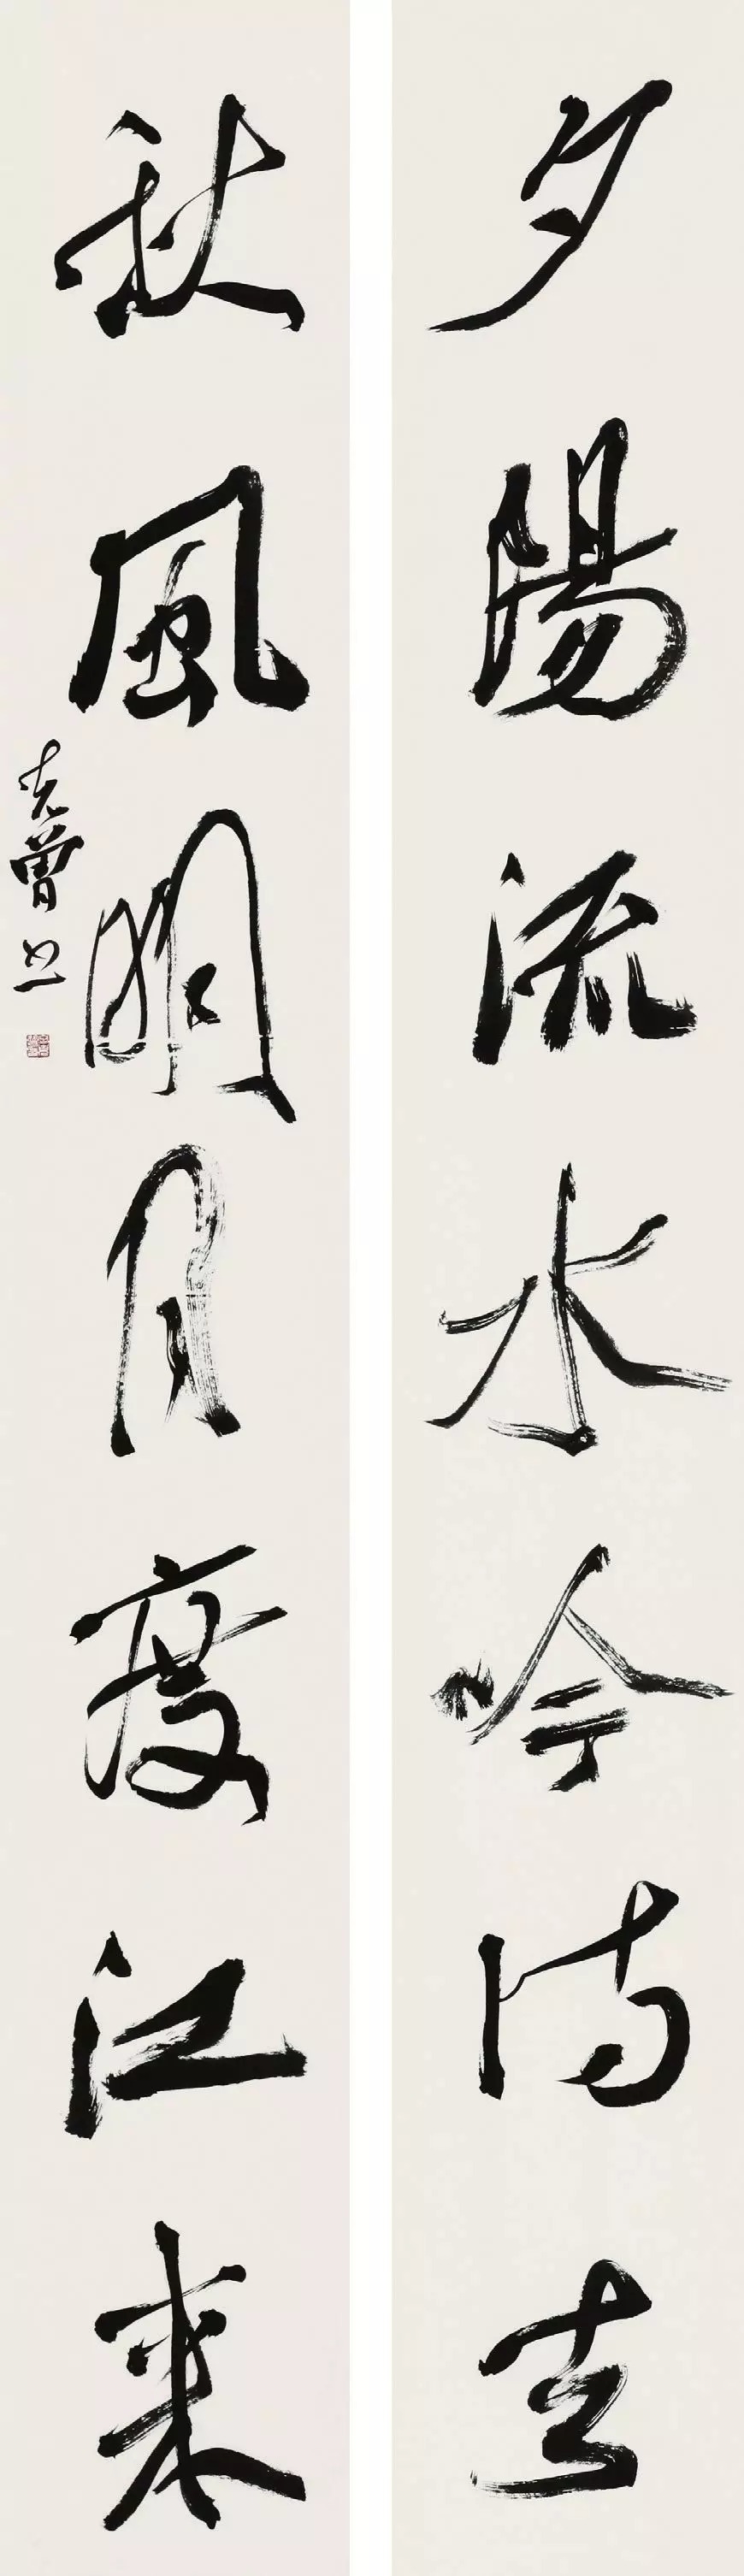 夕陽流水吟詩去
秋風明月度江來
克曾書